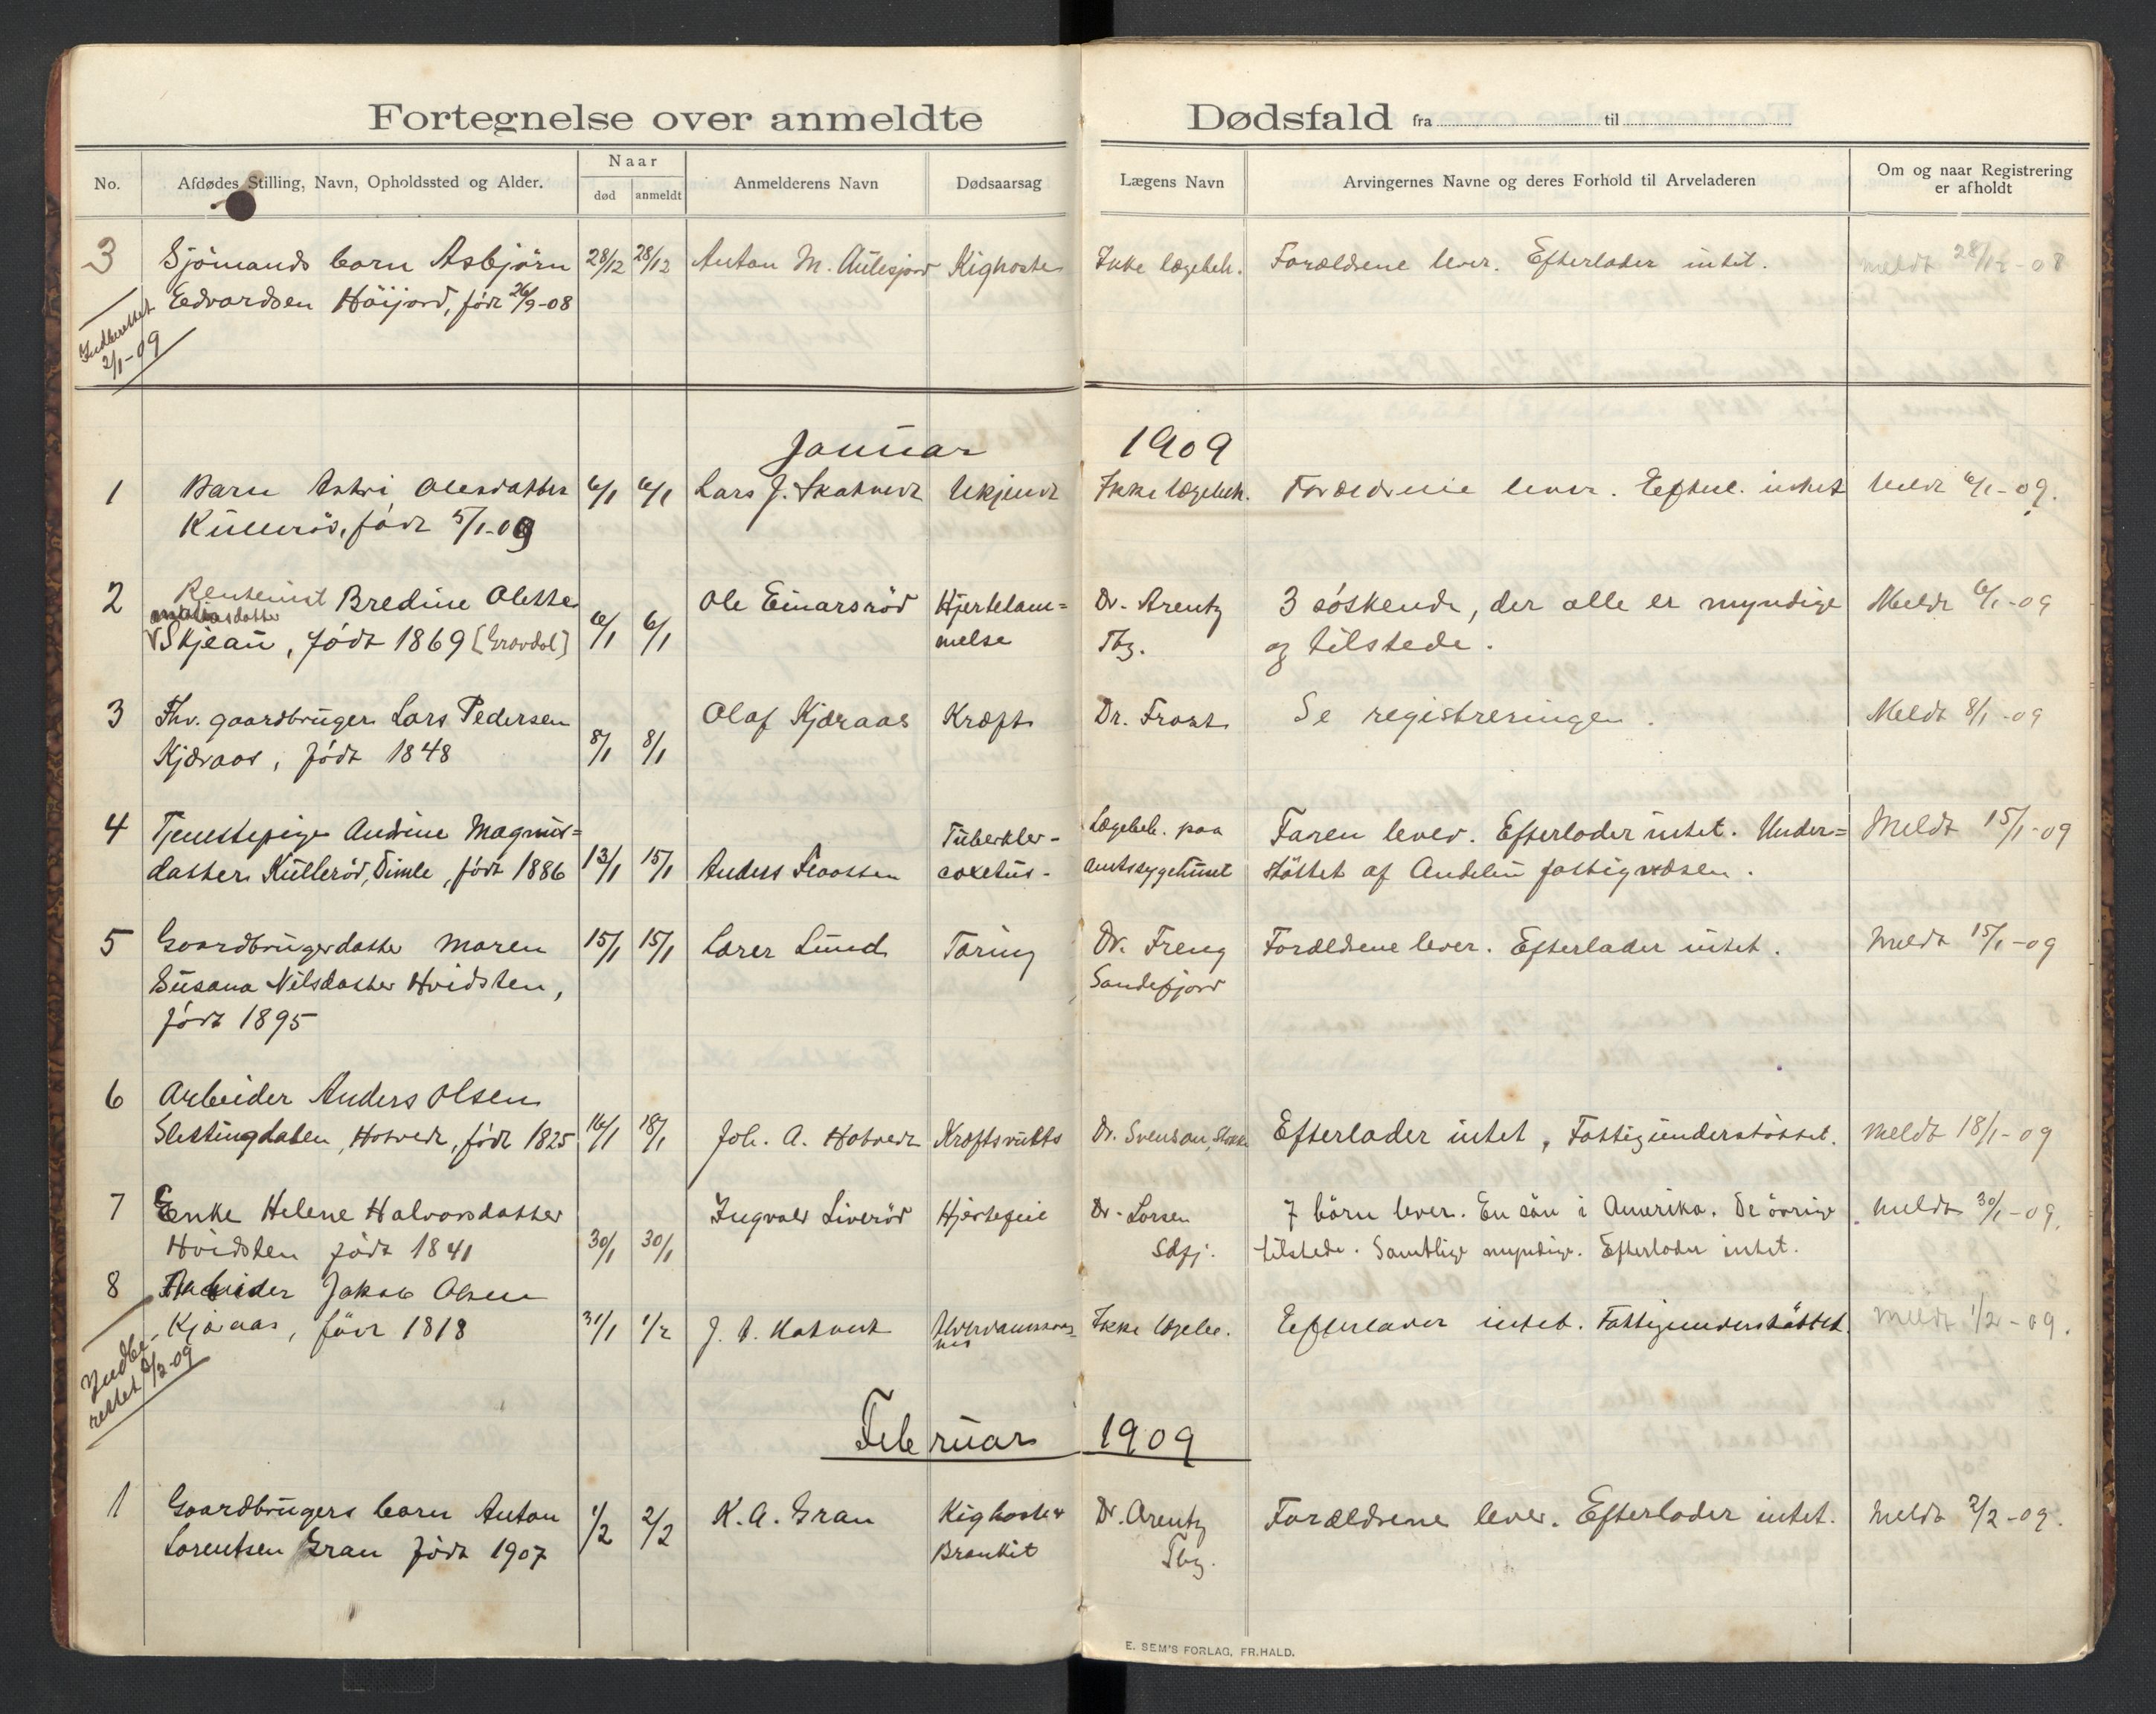 Fortegnelse over anmeldte Dødsfald fra til
No. Afdødes Stilling, Navn, Opholdssted og Alder. Naar død anmeldt Anmelderens Navn Dødsaarsag Lægens Navn Arvingernes Navne og deres Forhold til Arveladeren Om og naar Registrering er afholdt
3 Sjömands barn Asbjörn 28/12 28/12 Anton M. Kighoste Ikke lægebeh. Forældrene lever. Efterlader intet. meldt 28/12-08
Edvardsen Höijord, född 26/9-08
Indberettet
2/1-09
Januar 1909
1 Barn Astri Olesdatter 6/1 6/1 Lars J. Skatvedt Ukjendt Ikke lægebeh. Forældrene lever. Efterl. intet Meldt 6/1-09.
Kullerød, født 5/1-09
2 Rentenist Bredine Olette Ole Einarsröd Hjertelam= Dr. Arentz 3 söskende, der alle er myndige Meldt 6/1-09
Skjeau, født 1869 [Gravdal] 6/1 6/1 melse Tbg. og tilstede.
3 Fhv. gaardbruger Lars Pedersen Olaf Kjæraas Kræft Dr. Se registreringen. Meldt 8/1-09
Kjæraas, født 1848 8/1 8/1
4 Tjenestepige Andrine Magnus= Tuberkler- Lægebeh. paa Faren lever. Efterlader intet. Under= Meldt 15/1-09
datter Kullerød, Dimle, født 1886 13/1 15/1 Anders coxetus- amtssygehuset stöttet af Andebu fattigvæsen.
5 Gaardbrugerdatter Maren 15/1 15/1 Lærer Lund Tæring Dr. Freng Forældrene lever. Efterlader intet. Meldt 15/1-09
Susana Nilsdatter Hvidsten, Sandefjord
født 1895
6 Arbeider Anders Olsen
Slettingdalen, Hotvedt, født 1825 16/1 18/1 Joh. A. Hotvedt Kræftsvulst Dr. Svenson, Stokke Efterlader intet, Fattigunderstöttet. Meldt 18/1-09
7 Enke Helene Halvorsdatter Ingvald Liveröd Hjertefeil Dr. Larsen 7 börn lever. En sön i Amerika. De övrige Meldt 30/1-09.
Hvidsten født 1841 30/1 30/1 Sdfj. tilstede. Samtlige myndige. Efterlader intet.
8 Arbeider Jakob Olsen
Kjæraas, født 1818 31/1 1/2 J. A. Hotvedt Ikke lægebe. Efterlader intet. Fattigunderstöttet. Meldt 1/2-09.
Indbe-
rettet 2/2-09
Februar 1909
1 Gaardbrugers barn Anton 1/2 2/2 K. A. Gran Kighoste Dr. Arentz Forældrene lever. Efterlader intet. Meldt 2/2-09.
Lorentsen Gran født 1907 Bronkit Tbg.
E. SEM'S FORLAG, FR.HALD.